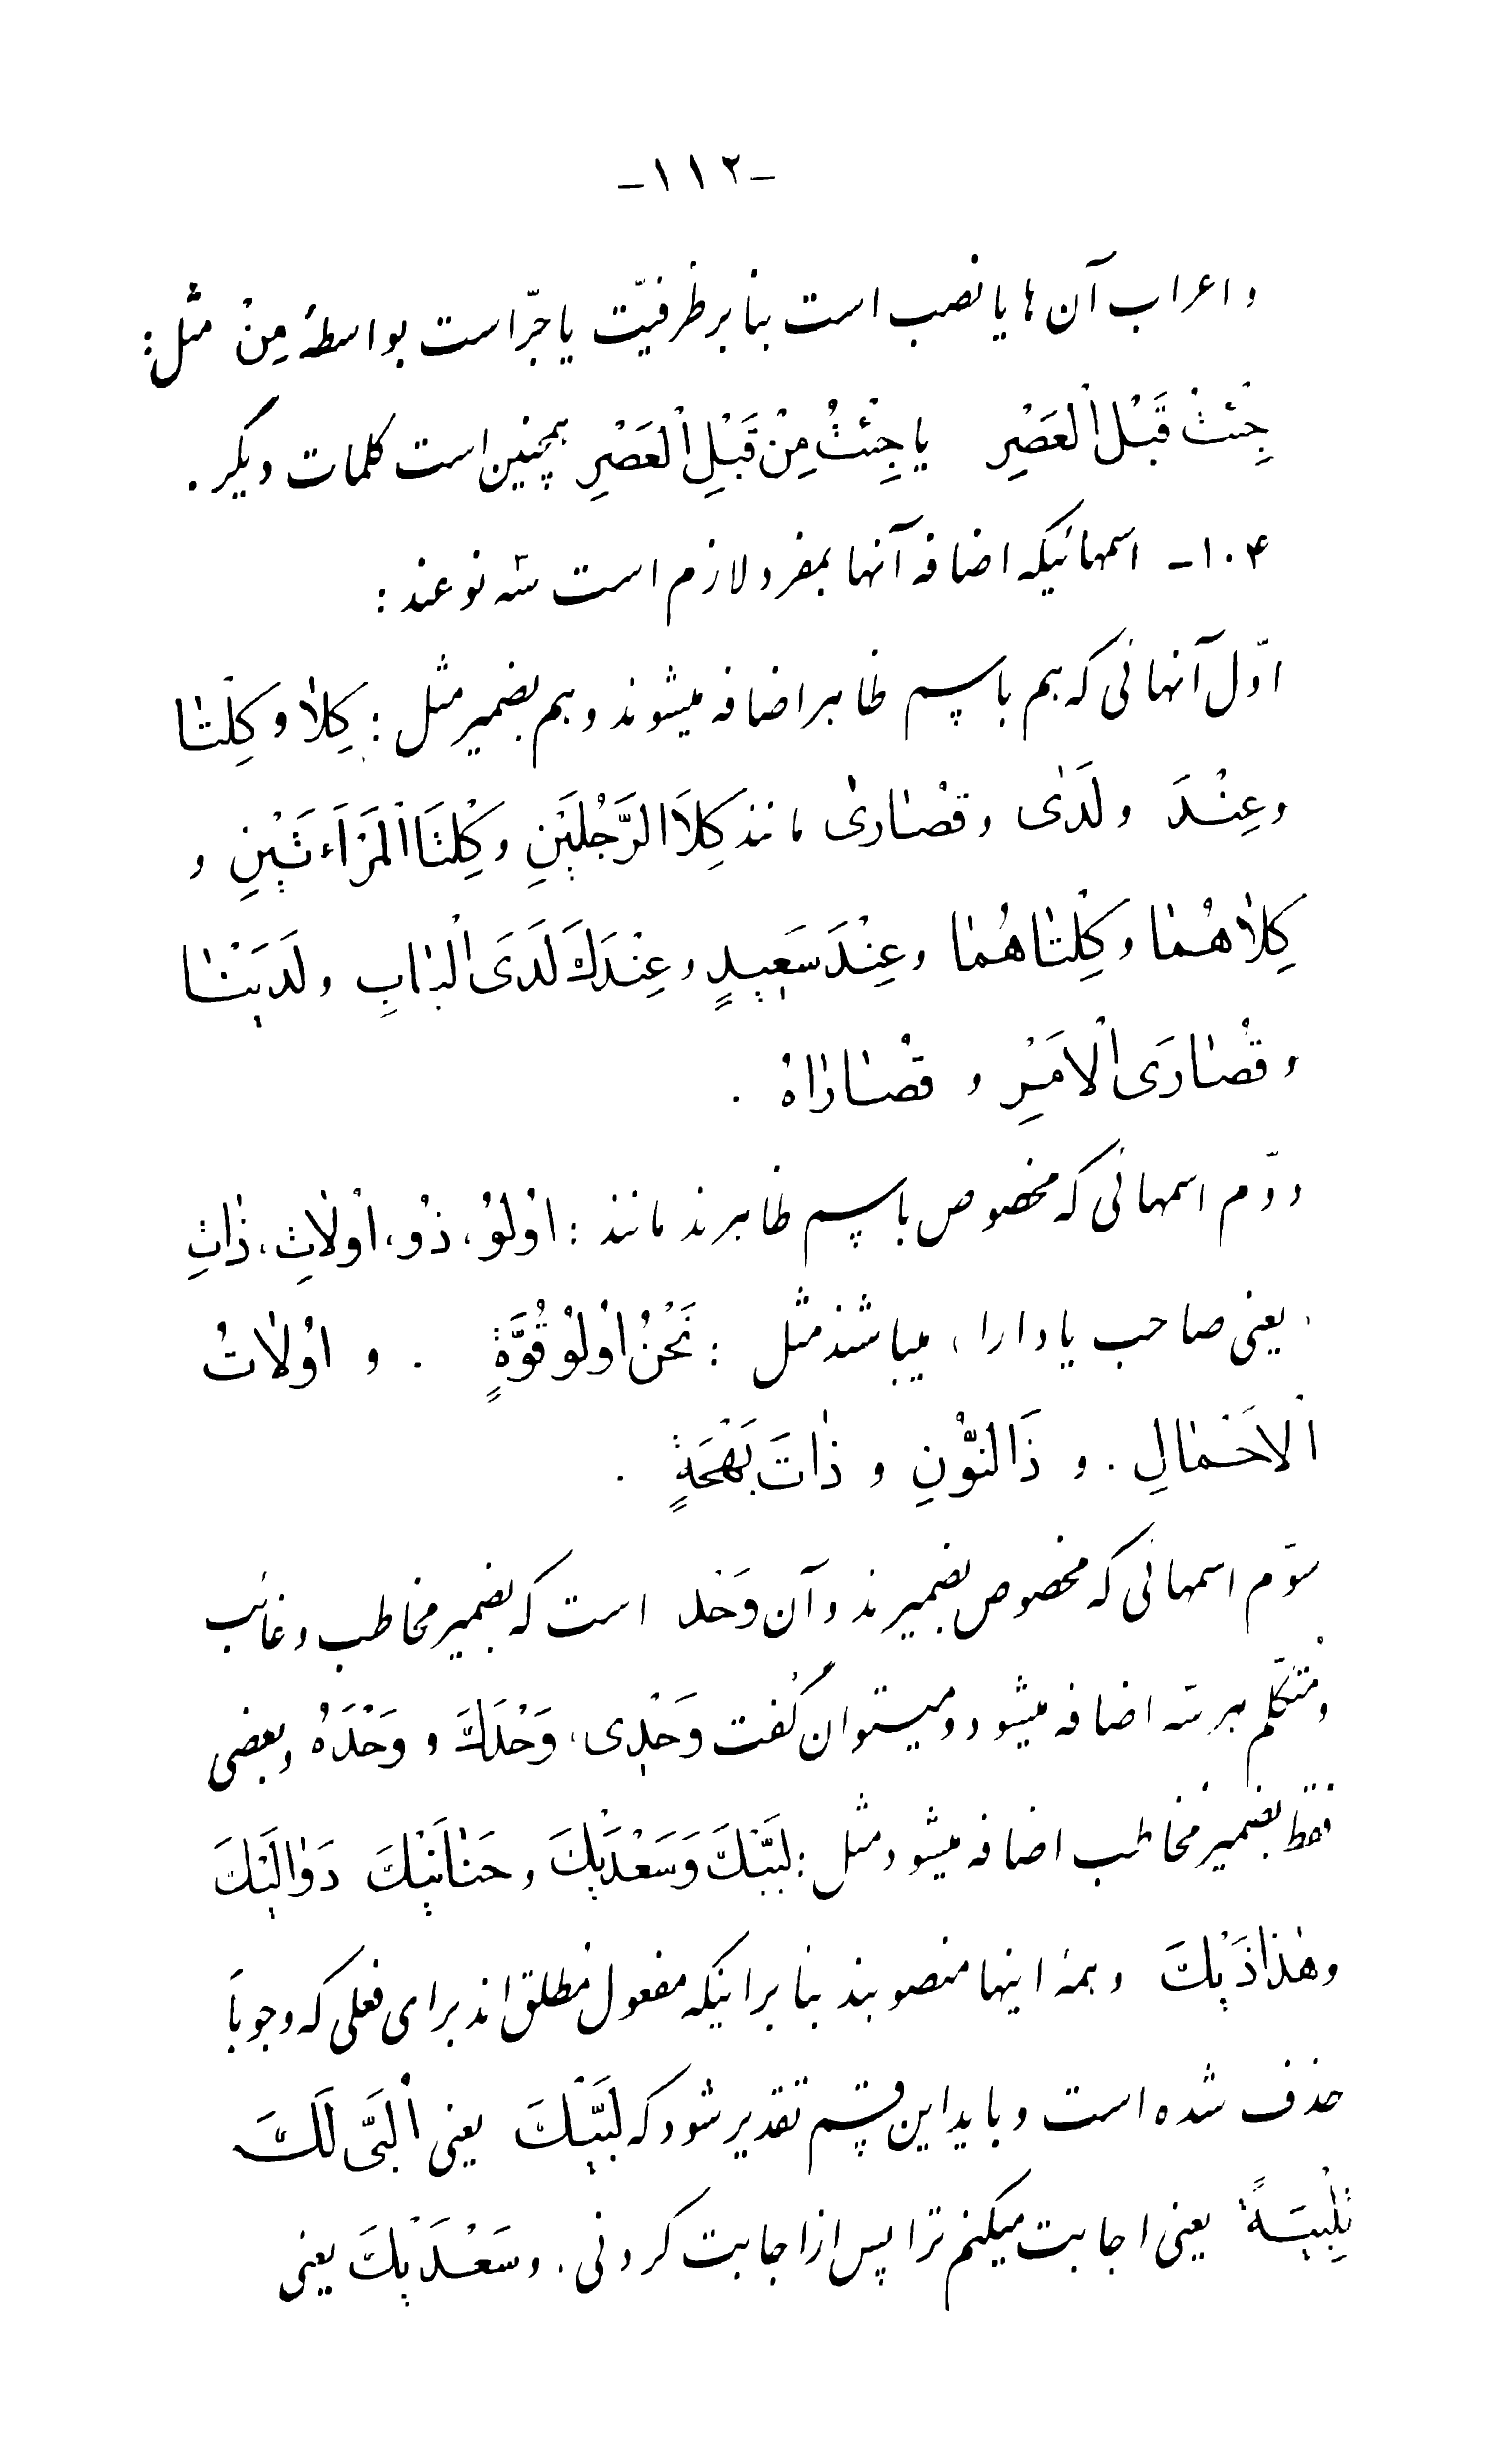 -۱۱۲-
و اعراب آن ها یا نصب است بنا بر ظرفیّت یا جرّ است بواسطهٔ مِنْ مثل:
جِئْتُ قَبْلَ الْعَصْرِ یا جِئْتُ مِنْ قَبْلِ الْعَصْرِ همچنین است کلمات دیگر.
۱۰۴- اسمهائیکه اضافه آنها بمفرد لازم است سّه نوعند:
اوّل آنهائی که هم باسم ظاهر اضافه میشوند و هم بضمیر مثل: کِلاٰ و کِلْتٰا
و عِنْدَ و لَدیٰ و قُصٰاریٰ مانند کِلاَ الرَّجُلَیْنِ و کِلْتَا الْمَرْأَتَیْنِ و
کِلاٰهُمٰا و کِلْتٰاهُمٰا و عِنْدَ سَعیدٍ و عِنْدَكَ لَدَی الْبٰابِ و لَدَیْنٰا
و قُصٰارَی الْاَمْرِ و قُصٰارٰاهُ .
دوّم اسمهائی که مخصوص باسم ظاهرند مانند: اُولُوُ، ذوُ، اُولاٰتِ، ذٰاتِ
یعنی صاحب یا دارا، میباشند مثل: نَحْنُ اُولُوُ قُوَّةٍ . و اُولاٰتُ
الْاَحْمٰالِ . و ذَا النّوُنِ و ذٰاتَ بَهْجَةٍ .
سوّم اسمهائی که مخصوص بضمیرند و آن وَحْدَ است که بضمیر مخاطب و غائب
و متکلّم هر سّه اضافه میشود و میتوان گفت وَحْدی، وَحْدَكَ و وَحْدَهُ و بعضی
فقط بضمیر مخاطب اضافه میشود مثل: لَبَّیْكَ وَ سَعْدَیْكَ و حَنٰانَیْكَ دَوٰالَیْكَ
و هٰذاذَیْكَ و همهٔ اینها منصوبند بنا بر اینکه مفعول مطلق اند برای فعلی که وجوباً
حذف شده است و باید این قسم تقدیر شود که لَبَّیْكَ یعنی اُلَبّی لَكَ
تَلْبِیَةً یعنی اجابت میکنم ترا پس از اجابت کردنی. و سَعْدَیْكَ یعنی